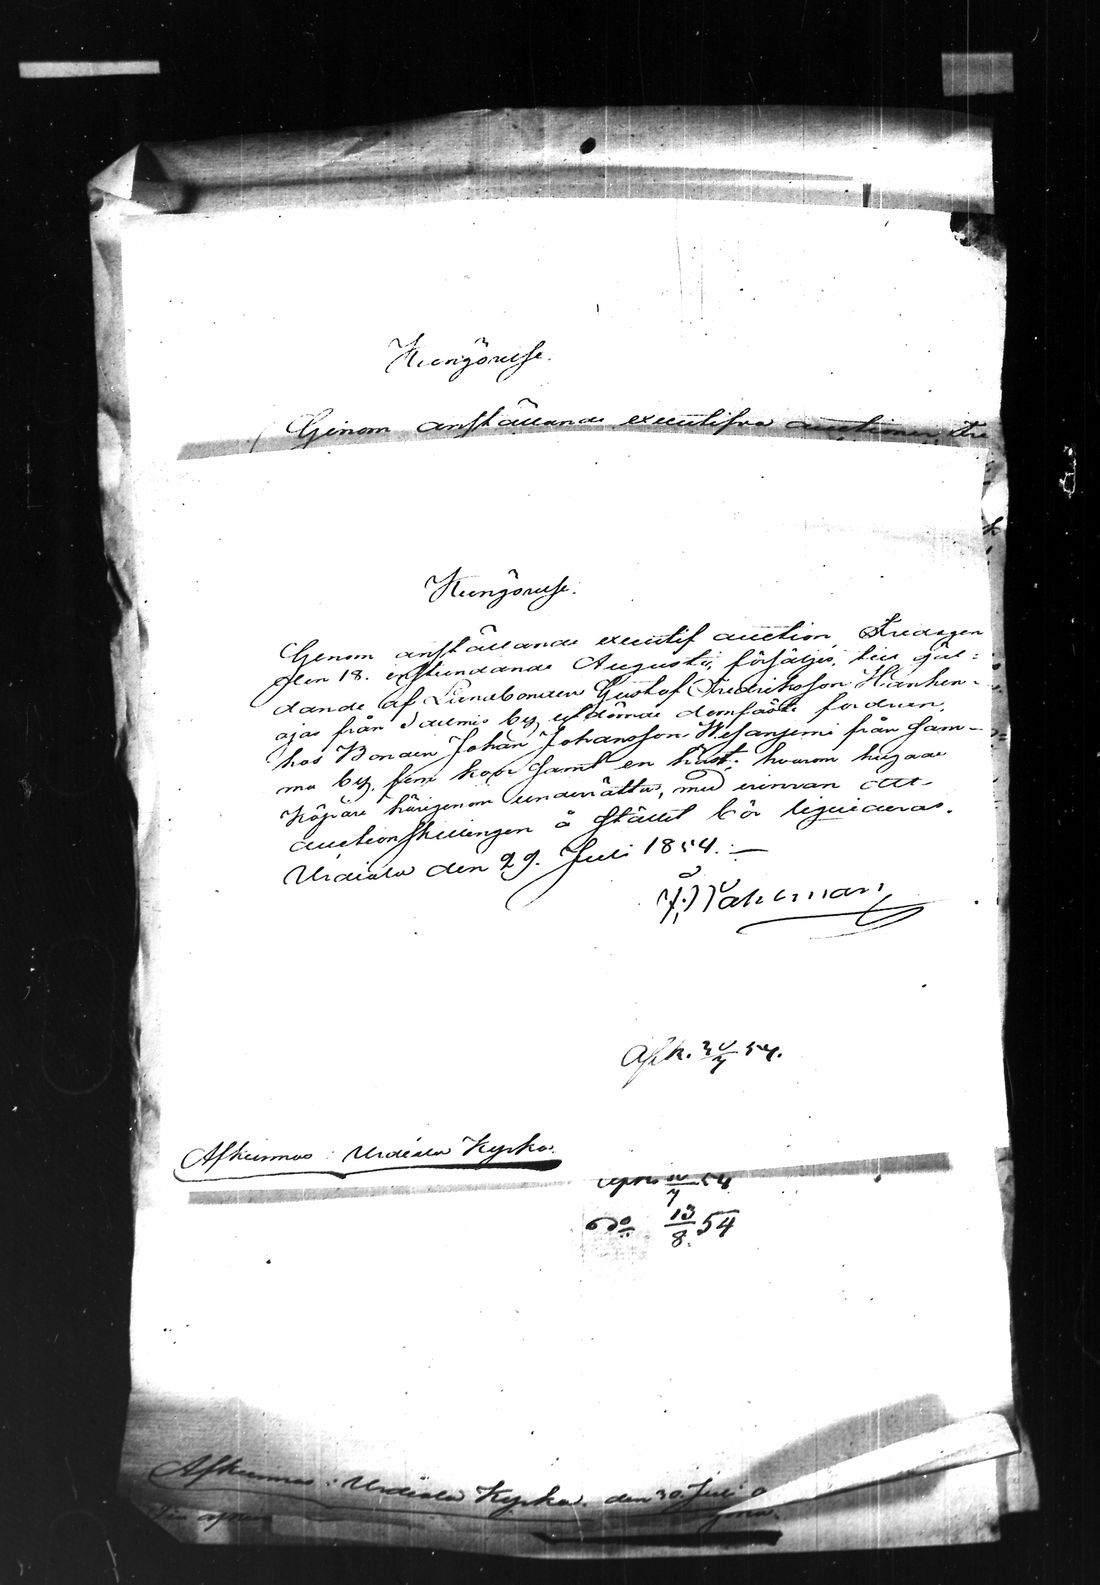 Kungörelse.
Genom anställande executifva auctioner, Fre
Kungörelse.
Genom anställande executif auction, Fredagen
den 18. instundande Augusti, försäljes, till gäl=
dande af Landbonden Gustaf Fredriksson Hanhen=
ojas från Saulmis by, utdömde domfäste fordran,
hos Bonden Johan Johansson Wesanjemi från sam-
ma by, fem kor samt en häst; hvarom hugade
köpare härigenom underrättas, med erinran att
auctionsskillingen å stället bör liquideras.
Urdiala den 29. Juli 1854.—
Afk. 30/7 54.
Afkunnas i Urdiala Kyrka.
30/7 54
do 13/8 54
Afkunnas i Urdiala Kyrka den 30. Juli